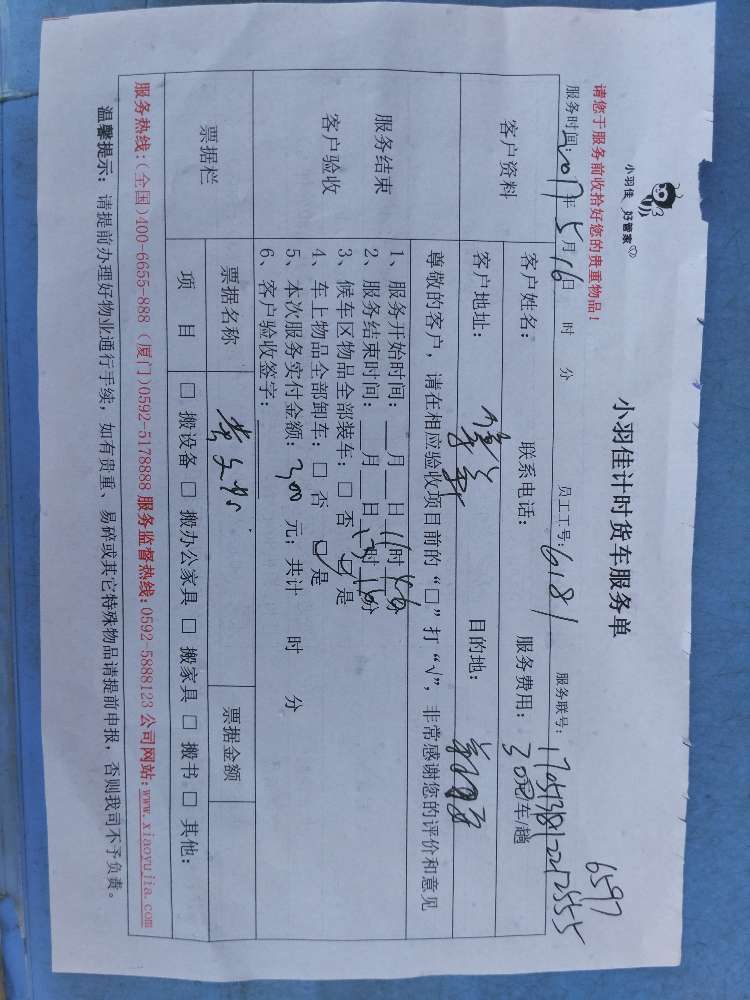 小羽佳 好管家
小羽佳计时货车服务单
6597
请您于服务前收拾好您的贵重物品！
服务时间：2017年5月16日 时 分 员工工号：6181 服务联号：
客户资料
客户姓名： 联系电话： 服务费用：300元/车/趟
客户地址： 目的地：
尊敬的客户，请在相应验收项目前的“□”打“√”，非常感谢您的评价和意见
服务结束
客户验收
1、服务开始时间：__月__日11时40分
2、服务结束时间：__月__日 时 分
3、候车区物品全部装车：□ 否 ☑ 是
4、车上物品全部卸车：□ 否 ☑ 是
5、本次服务实付金额：300 元；共计 时 分
6、客户验收签字：
票据栏
票据名称 票据金额
项 目 □ 搬设备 □ 搬办公家具 □ 搬家具 □ 搬书 □ 其他：
服务热线：(全国)400-6655-888 (厦门)0592-5178888 服务监督热线：0592-5888123 公司网站：www.xiaoyujia.com
温馨提示：请提前办理好物业通行手续，如有贵重、易碎或其它特殊物品请提前申报，否则我司不予负责。